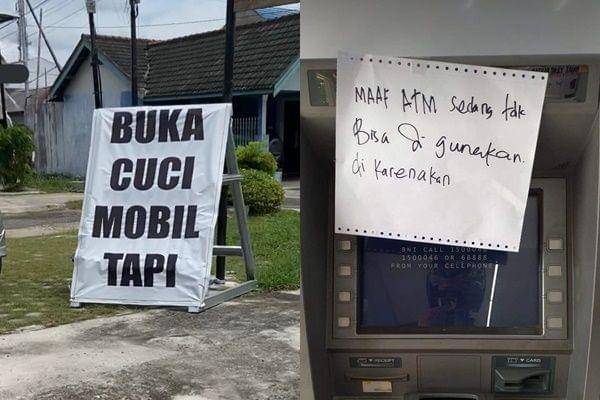 BUKA
CUCI
MOBIL
TAPI
MAAF ATM sedang tdk
Bisa di gunakan.
di karenakan
BNI CALL 1500046
1500046 OR 68888
FROM YOUR CELLPHONE
RECEIPT
CARD